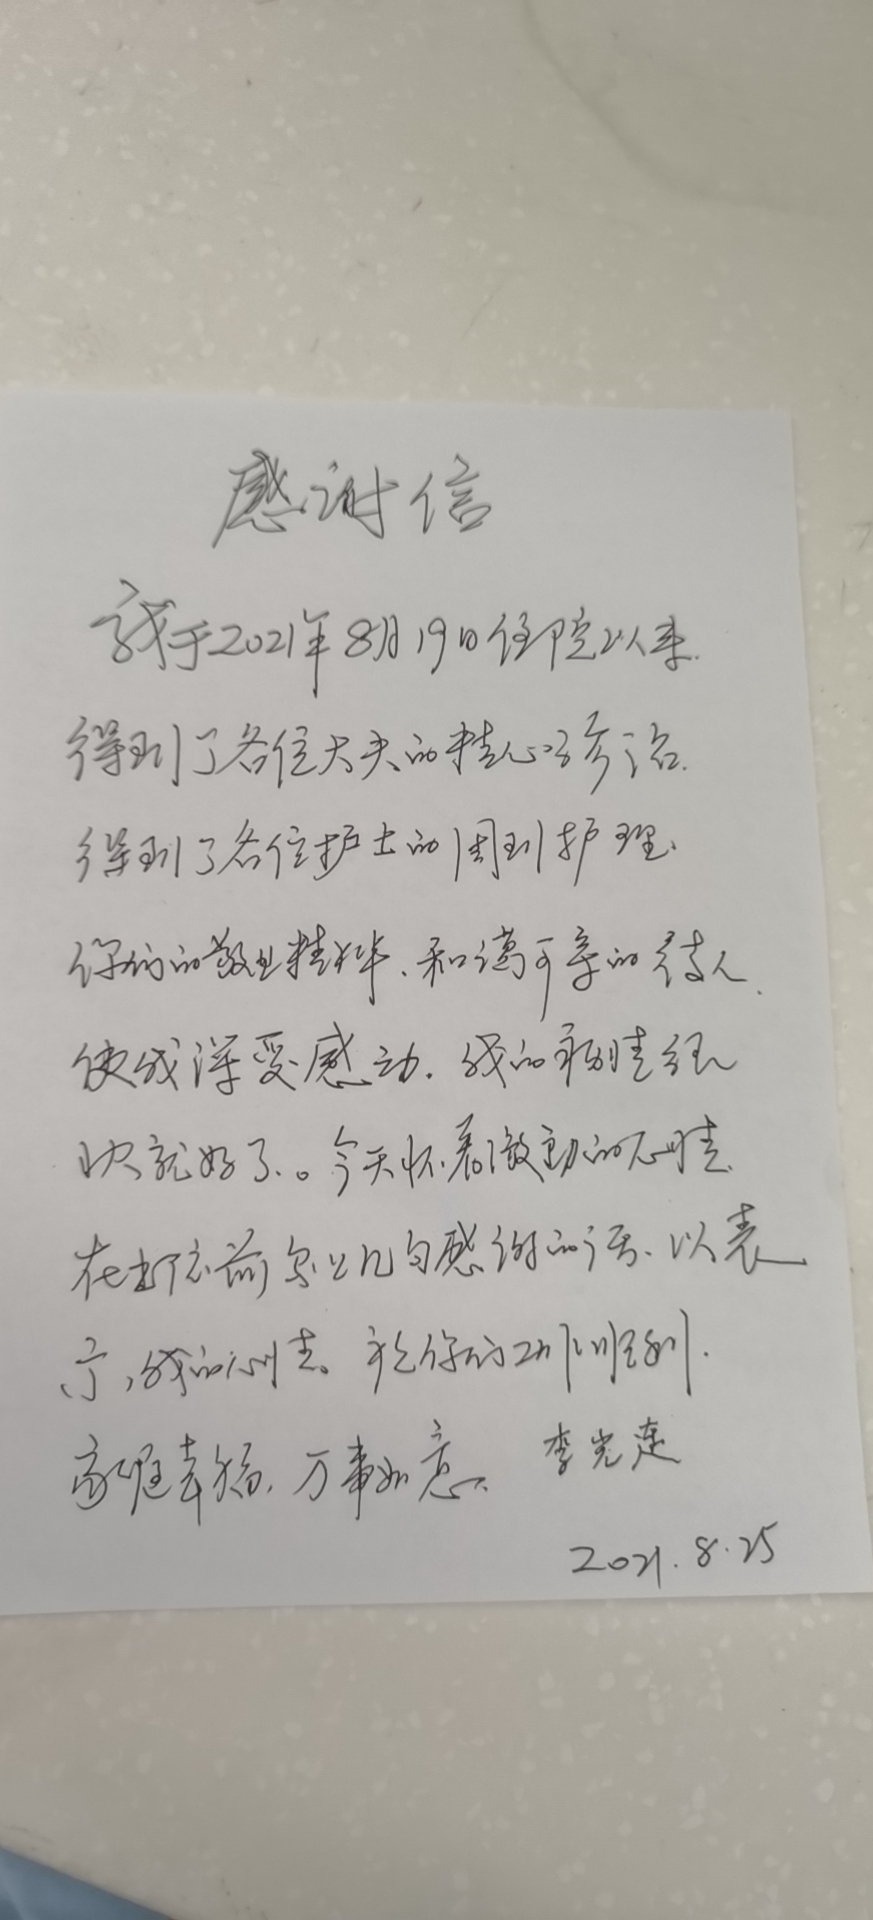 感谢信
我于2021年8月19日住院以来.
得到了各位大夫的精心诊治.
得到了各位护士的周到护理.
你们的敬业精神、和蔼可亲的待人.
使我深受感动. 我的病情很
快就好了.。今天怀着激动的心情.
在出院前写上几句感谢的话、以表
示,我的心情。祝你们工作顺利.
家庭幸福. 万事如意. 李光莲
2021.8.25